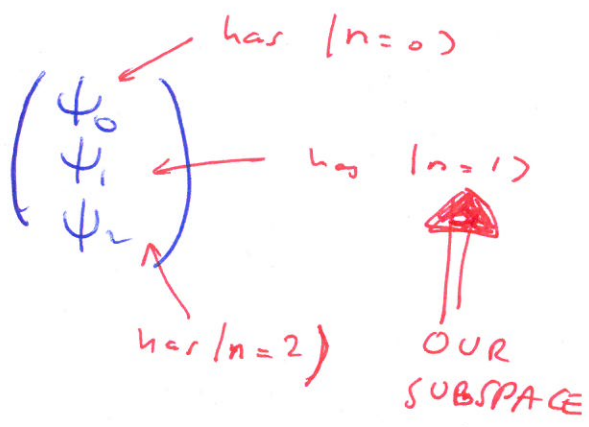 has |n=0⟩
ψ₀
ψ₁
has |n=1⟩
ψ₂
has |n=2⟩
OUR
SUBSPACE